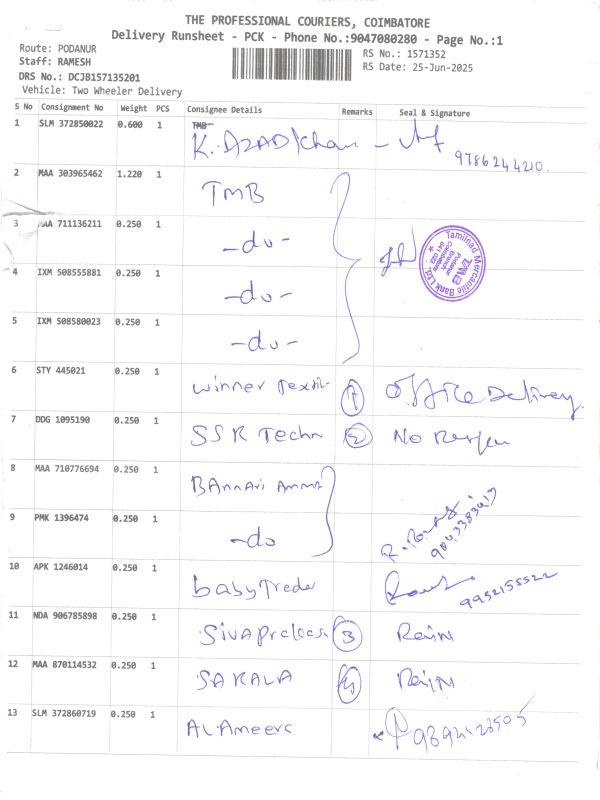 THE PROFESSIONAL COURIERS, COIMBATORE
Delivery Runsheet - PCK - Phone No.:9047080280 - Page No.:1
Route: PODANUR
Staff: RAMESH
DRS No.: DCJB157135201
Vehicle: Two Wheeler Delivery
RS No.: 1571352
RS Date: 25-Jun-2025
S No Consignment No Weight PCS Consignee Details Remarks Seal & Signature
1 SLM 372850022 0.600 1 TMB K. AZAD Khan 9786244210.
2 MAA 303965462 1.220 1 TMB
3 MAA 711136211 0.250 1 -do-
Tamilnad Mercantile Bank Ltd.
TMB
Podanur
Branch
Coimbatore
641 023
4 IXM 508555881 0.250 1 -do-
5 IXM 508580023 0.250 1 -do-
6 STY 445021 0.250 1 Winner Textil 1 Office Delivery.
7 DDG 1095190 0.250 1 SSR Techn 2 No
8 MAA 710776694 0.250 1 BAnnari Amma
9 PMK 1396474 0.250 1 -do 9843383417
10 APK 1246014 0.250 1 baby Trader 9952155522
11 NDA 906785898 0.250 1 Siva 3 Rain
12 MAA 870114532 0.250 1 SAKALA 4 Rain
13 SLM 372860719 0.250 1 AL.Ameers